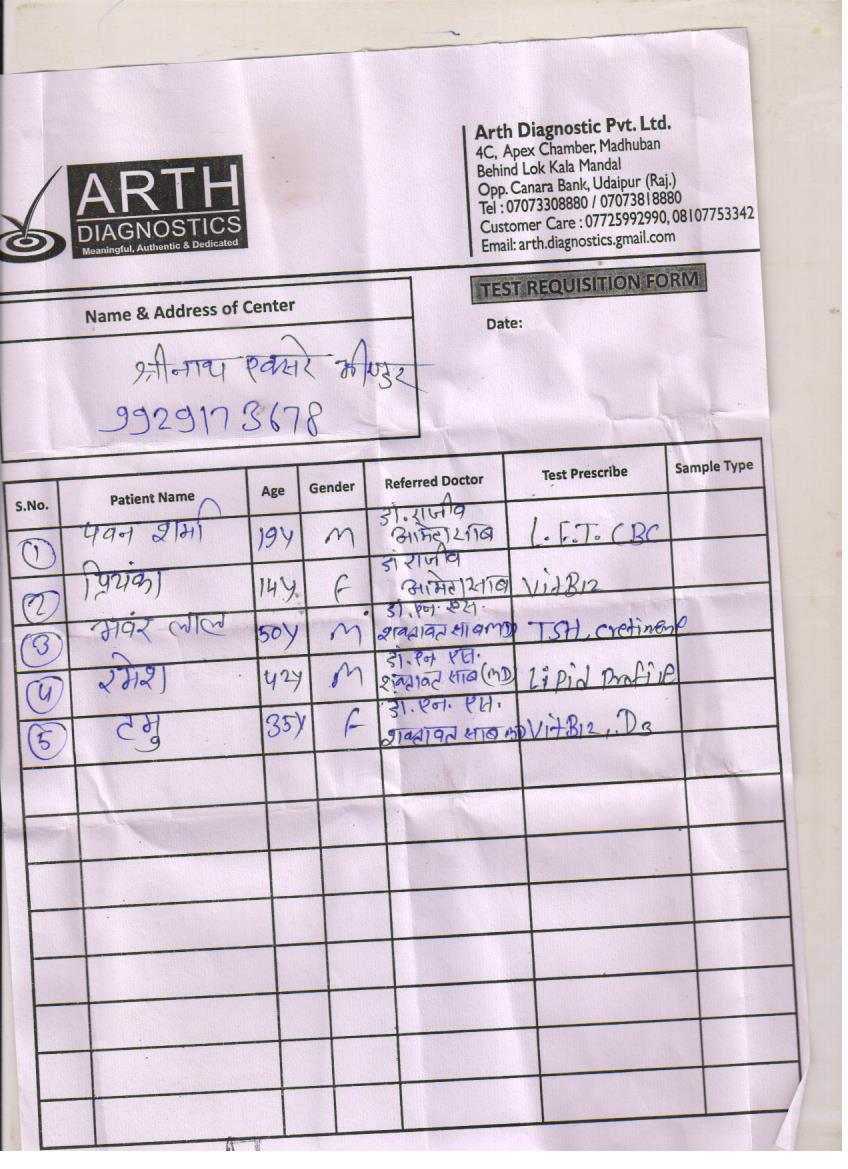 ARTH
DIAGNOSTICS
Meaningful, Authentic & Dedicated
Arth Diagnostic Pvt. Ltd.
4C, Apex Chamber, Madhuban
Behind Lok Kala Mandal
Opp. Canara Bank, Udaipur (Raj.)
Tel : 07073308880 / 07073818880
Customer Care : 07725992990, 08107753342
Email: arth.diagnostics.gmail.com
TEST REQUISITION FORM
Date:
Name & Address of Center
श्रीनाथ एक्सरे भीण्डर
9929173678
S.No. Patient Name Age Gender Referred Doctor Test Prescribe Sample Type
1 पवन शर्मा 19y M डॉ. राजीव आमेटा साब L.F.T. CBC
2 प्रियंका 14y F डॉ राजीव आमेटा साब Vit B12
3 भवंर लाल 50y M डॉ. एन. एस. शक्तावत साब MD TSH, cretinene
4 रमेश 42y M डॉ. एन एस. शक्तावत साब (MD) Lipid Profile
5 टमु 35y F डॉ. एन. एस. शक्तावत साब MD Vit B12, D3